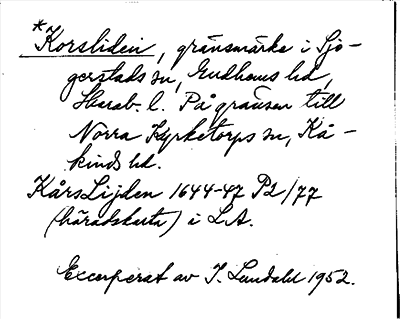 *Korsliden, gränsmärke i Sjö-
gerstads sn, Gudhems hd,
Skarab. l. På gränsen till
Norra Kyrketorps sn, Kå-
kinds hd.
KårsLijden 1644-47 P2/77
(häradskarta) i LA.
Excerperat av I. Lundahl 1952.